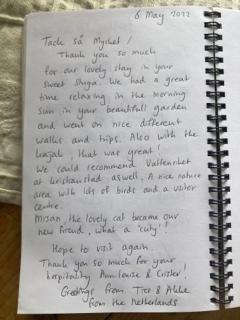 6 May 2022
Tack så Mycket!
Thank you so much
for our lovely stay in your
sweet Stuga. We had a great
time relaxing in the morning
sun in your beautifull garden
and went on nice different
walks and trips. Also with the
kajak, that was great!
We could recommend Vattenriket
at Kristianstad aswell, A nice nature
area with lots of birds and a visitor
centre.
the lovely cat became our
new friend, what a "cuty"!
Hope to visit again
Thank you so much for your
hospitality Annlouise & Crister!
Greetings from &
from the Netherlands